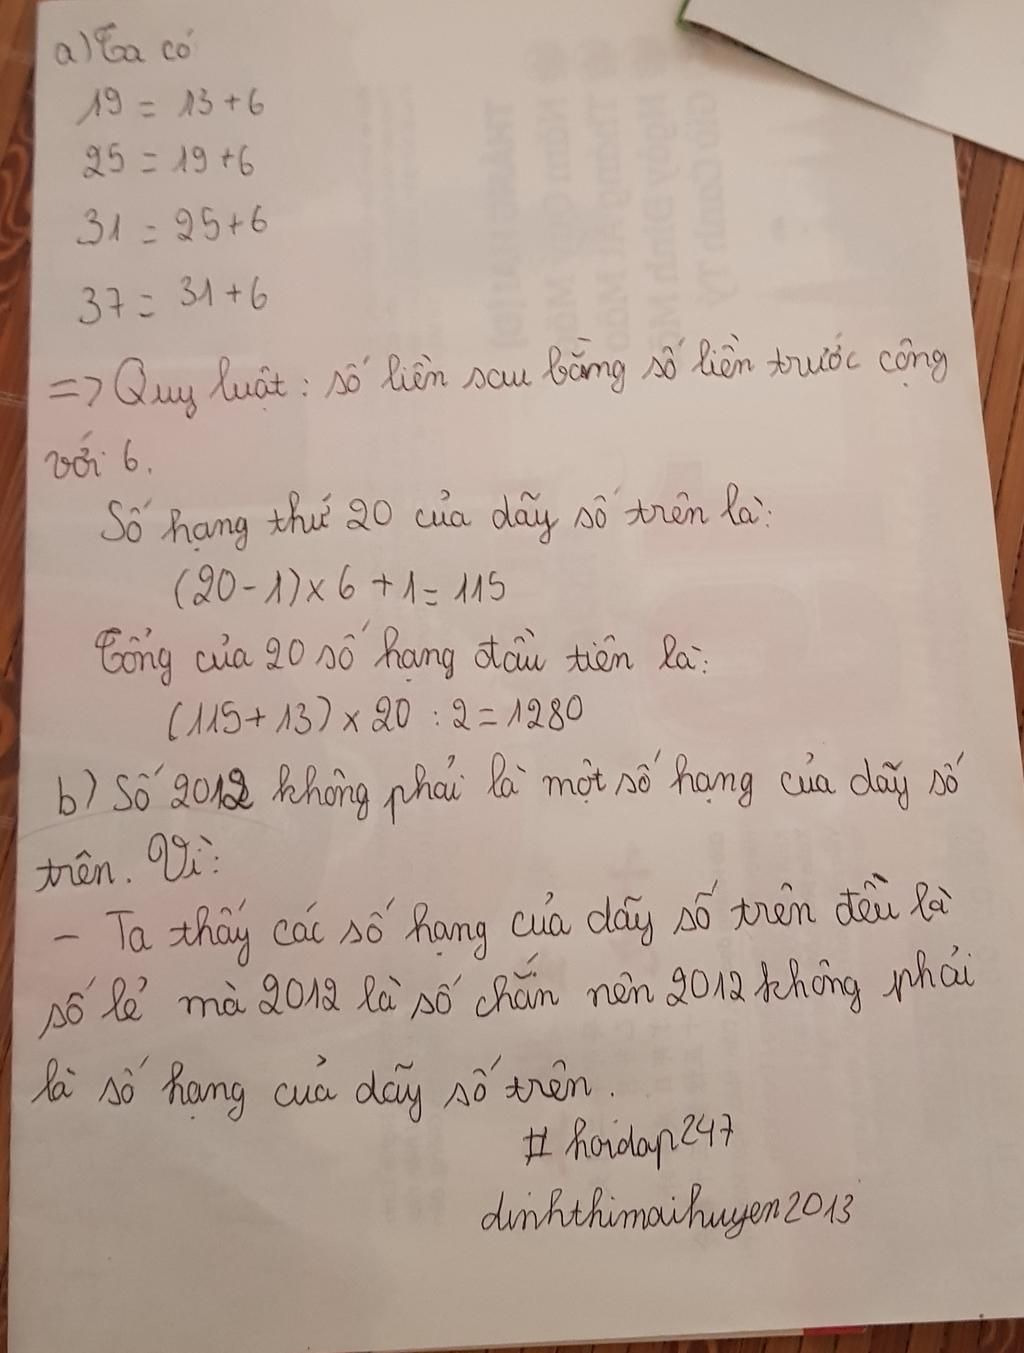 a) Ta có
19 = 13 + 6
25 = 19 + 6
31 = 25 + 6
37 = 31 + 6
=> Quy luật : số liền sau bằng số liền trước cộng
với 6.
Số hạng thứ 20 của dãy số trên là:
(20 - 1) x 6 + 1 = 115
Tổng của 20 số hạng đầu tiên là:
(115 + 13) x 20 : 2 = 1280
b) Số 2012 không phải là một số hạng của dãy số
trên. Vì:
- Ta thấy các số hạng của dãy số trên đều là
số lẻ mà 2012 là số chẵn nên 2012 không phải
là số hạng của dãy số trên.
# hoidap247
dinhthimaihuyen2013